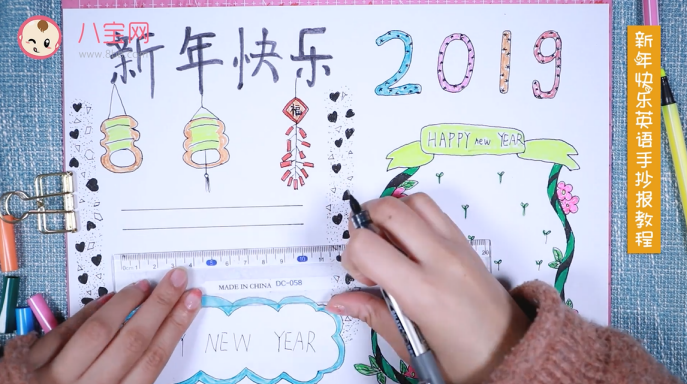 八宝网
新年快乐
2019
新年快乐英语手抄报教程
福
HAPPY NEW YEAR
MADE IN CHINA DC-058
NEW YEAR